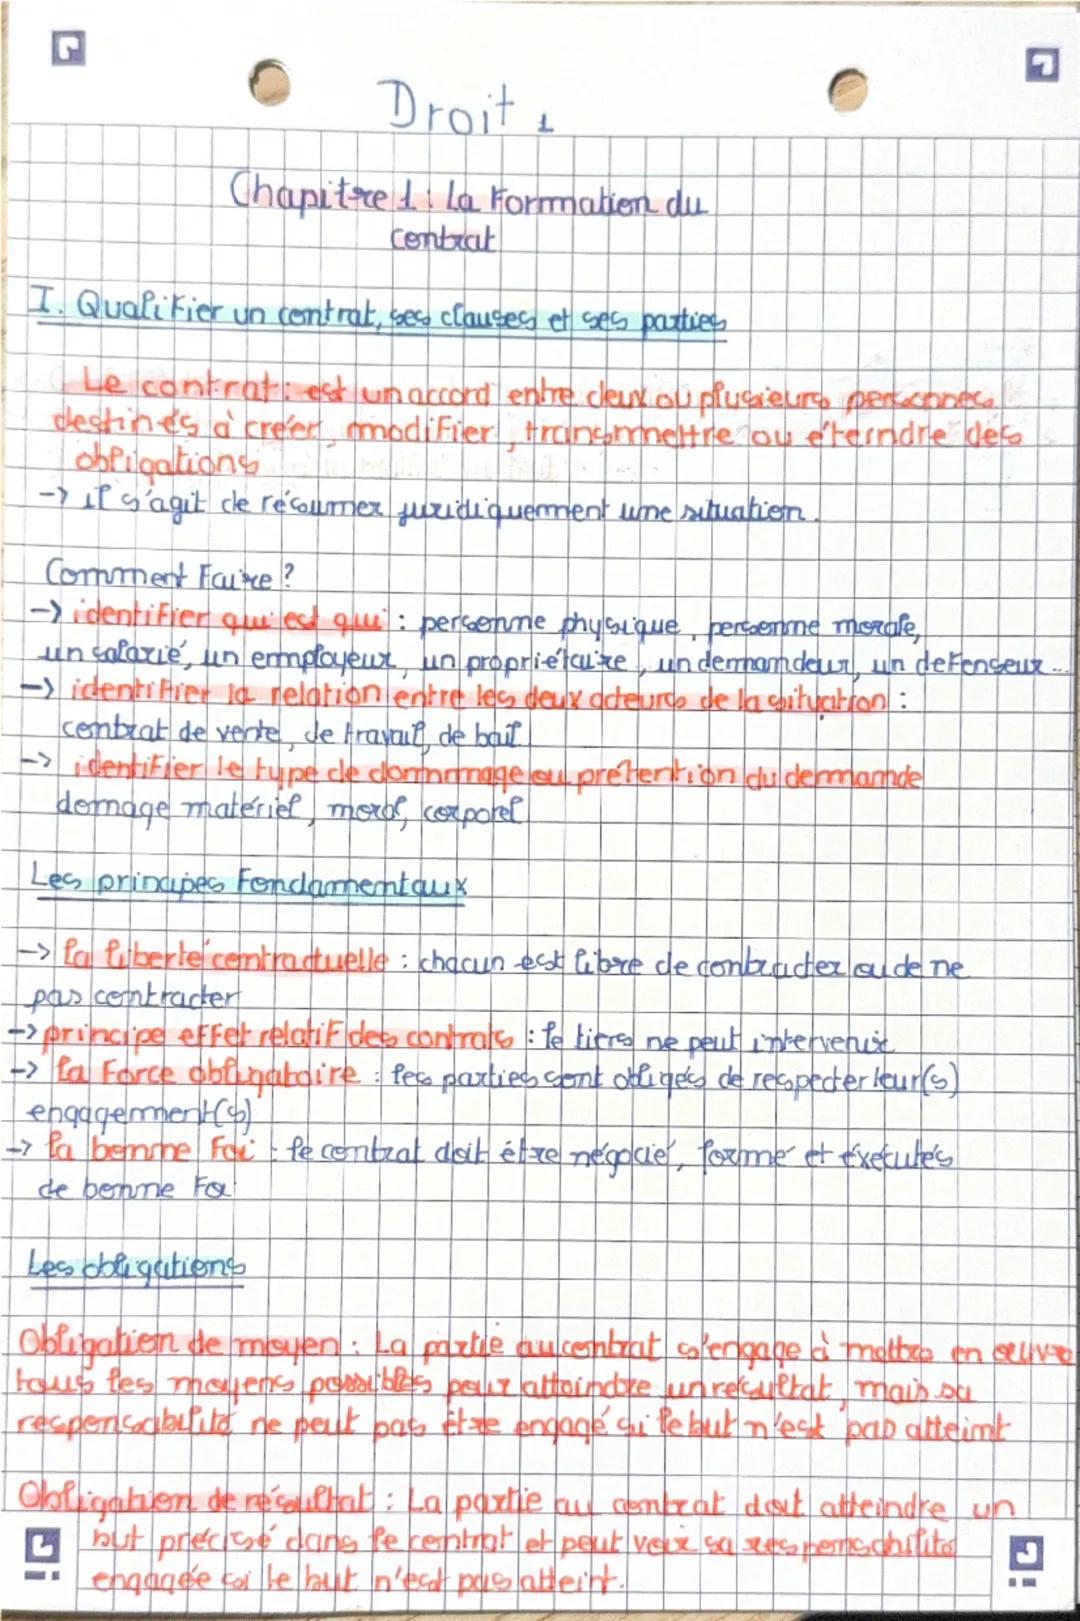 Droit 1
Chapitre 1 : La Formation du
contrat
I. Qualifier un contrat, ses clauses et ses parties
Le contrat : est un accord entre deux ou plusieurs personnes
destinés à créer, modifier, transmmettre ou éteindre des
obligations
-> il s'agit de résumer juridiquement une situation.
Comment Faire ?
-> identifier qui est qui : personne physique, personne morale,
un salarié, un employeur, un propriétaire, un demandeur, un defenseur...
-> identifier la relation entre les deux acteurs de la situation :
contrat de vente, de travail, de bail
-> identifier le type de dommage ou prétention du demande
domage matériel, moral, corporel
Les principes Fondamentaux
-> la liberté contractuelle : chacun est libre de contracter ou de ne
pas contracter
-> principe effet relatif des contrats : le tiers ne peut intervenir
-> la Force obligatoire : les parties sont obligés de respecter leur(s)
engagement(s)
-> la bonne Foi : le contrat doit être négocié, formé et éxécutés
de bonne Foi
Les obligations
Obligation de moyen : La partie au contrat s'engage à mettre en oeuvre
tous les moyens possibles pour atteindre un résultat, mais sa
responsabilité ne peut pas être engagé si le but n'est pas atteint
Obligation de résultat : La partie au contrat doit atteindre un
but précisé dans le contrat et peut voir sa responsabilité
engagée si le but n'est pas atteint.